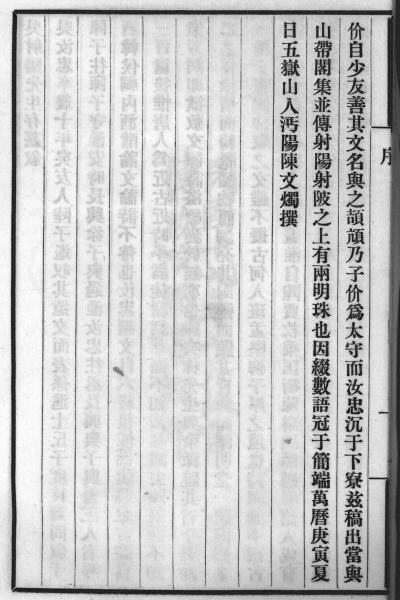 序
价自少友善其文名與之頡頏乃子价爲太守而汝忠沉于下寮茲稿出當與
山帶閣集並傳射陽射陂之上有兩明珠也因綴數語冠于簡端萬曆庚寅夏
日五嶽山人沔陽陳文燭撰